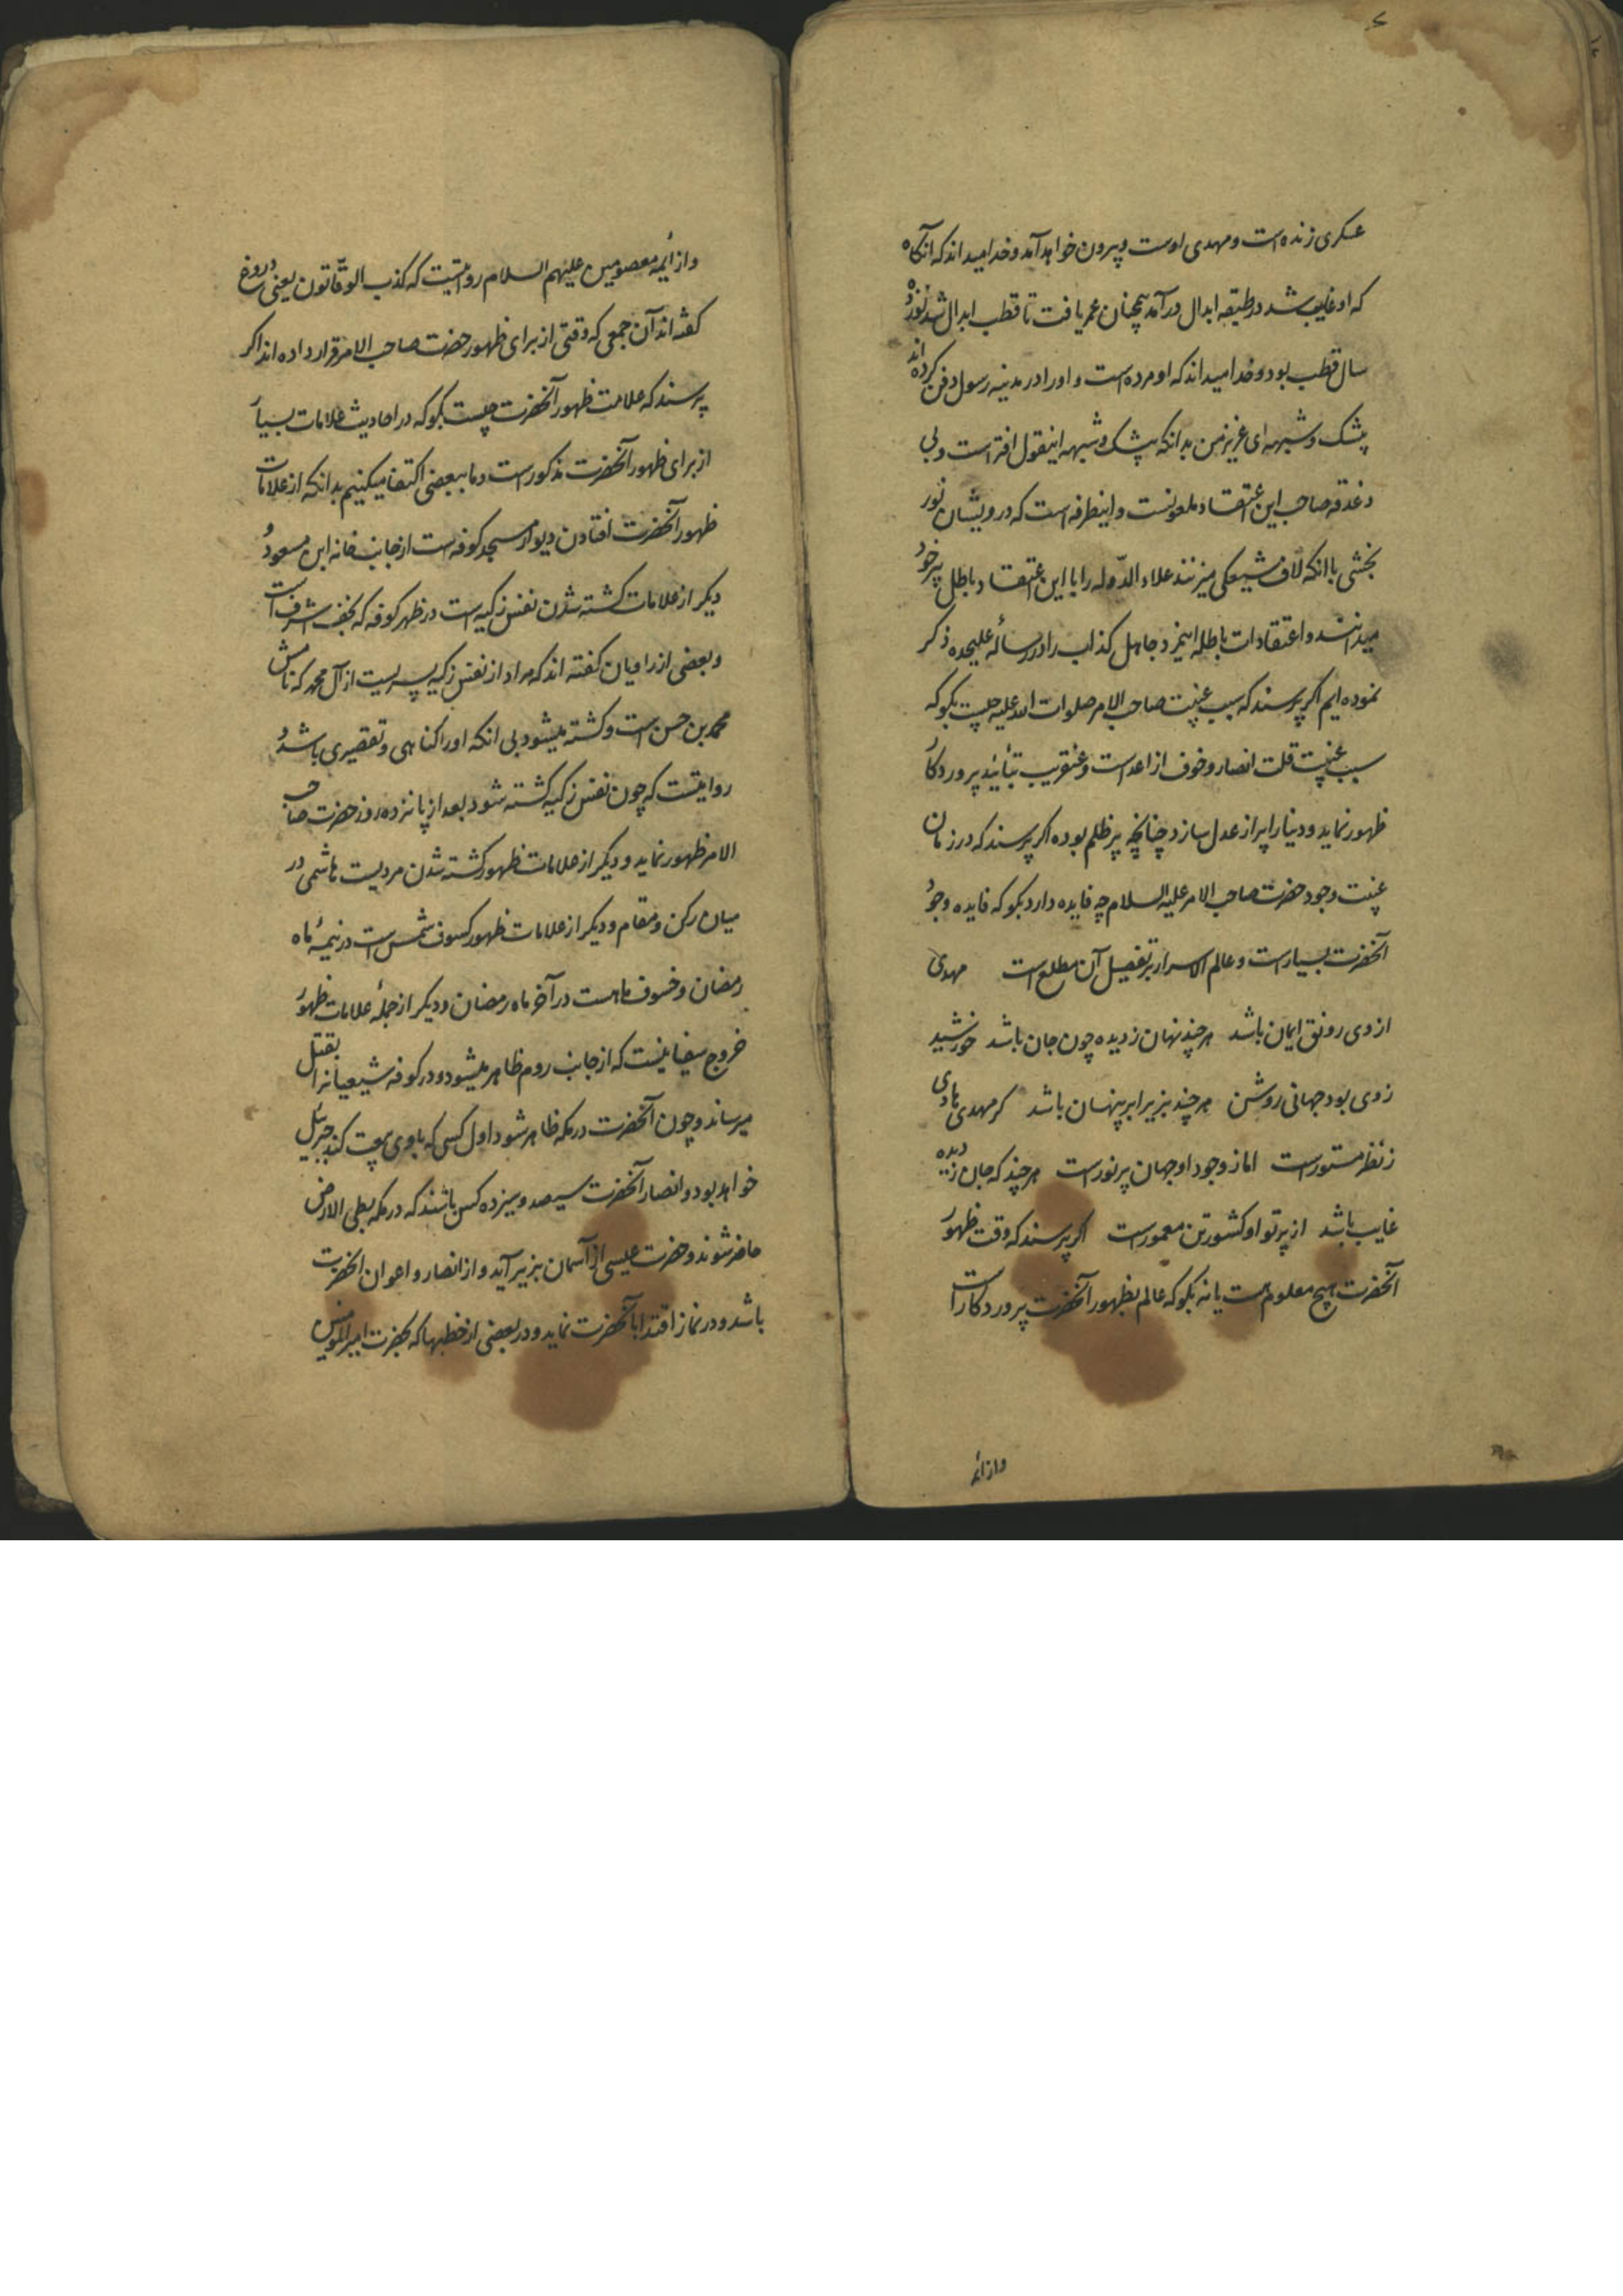 عسکری زنده است و مهدی اوست و بیرون خواهد آمد و خدا میداند که آنگاه
که او غایب شد در طبقه ابدال درآمد همچنان عمر یافت تا قطب ابدال شد نوزده
سال قطب بود و خدا میداند که او مرده است و او را در مدینه رسول دفن کرده اند
بیشک و شبهه ای عزیز من بدانکه بیشک و شبهه اینقول افتراست و بی
دغدقه صاحب این اعتقاد ملعونست و اینطرفه است که درویشان نور
بخشی با آنکه لاف شیعگی میزنند علاء الدوله را با این اعتقاد باطل پیر خود
میدانند و اعتقادات باطله اینمرد جاهل کذاب را در رساله علیحده ذکر
نموده ایم اگر پرسند که سبب غیبت صاحب الامر صلوات الله علیه چیست بگو که
سبب غیبت قلت انصار و خوف از اعداست و عنقریب بتأیید پروردکار
ظهور نماید و دنیا را پر از عدل سازد چنانچه پر ظلم بوده اگر پرسند که در زمان
غیبت وجود حضرت صاحب الامر علیه السلام چه فایده دارد بگو که فایده وجود
آنحضرت بسیارست و عالم الاسرار بر تفصیل آن مطلع است مهدی
از وی رونق ایمان باشد هر چند نهان ز دیده چون جان باشد خورشید
ز وی بود جهانی روشن هر چند بزیر ابر پنهان باشد گر مهدی هادی
ز نظر مستورست اما ز وجود او جهان پر نورست هر چند که جان ز دیده
غایب باشد از پرتو او کشور تن معمورست اگر پرسند که وقت ظهور
آنحضرت هیچ معلوم هست یا نه بگو که عالم بظهور آنحضرت پروردکار است
وازائمه
و از ائمه معصومین علیهم السلام روایتیست که کذب الوقاتون یعنی دروغ
گفته اند آن جمعی که وقتی از برای ظهور حضرت صاحب الامر قرار داده اند اگر
پرسند که علامت ظهور آنحضرت چیست بگو که در احادیث علامات بسیار
از برای ظهور آنحضرت مذکور است و ما ببعضی اکتفا میکنیم بدانکه از علامات
ظهور آنحضرت افتادن دیوار مسجد کوفه است از جانب خانه ابن مسعود و
دیگر از علامات کشته شدن نفس زکیه است در ظهر کوفه که نجف اشرف است
و بعضی از راویان گفته اند که مراد از نفس زکیه پسریست از آل محمد که نامش
محمد بن حسن است و کشته میشود بی انکه او را گناهی و تقصیری باشد و
روایتست که چون نفس زکیه کشته شود بعد از پانزده روز حضرت صاحب
الامر ظهور نماید و دیگر از علامات ظهور کشته شدن مردیست هاشمی در
میان رکن و مقام و دیگر از علامات ظهور کسوف شمس است در نیمه ماه
رمضان و خسوف ماهست در آخر ماه رمضان و دیگر از جمله علامات ظهور
خروج سفیانیست که از جانب روم ظاهر میشود و در کوفه شیعیانرا بقتل
میرساند و چون آنحضرت در مکه ظاهر شود اول کسی که با وی بیعت کند جبرئیل
خواهد بود و انصار آنحضرت سیصد و سیزده کس باشند که در مکه بطی الارض
حاضر شوند و حضرت عیسی از آسمان بزیر آید و از انصار و اعوان آنحضرت
باشد و در نماز اقتدا بآنحضرت نماید و در بعضی از خطبها که بحضرت امیر المومنین